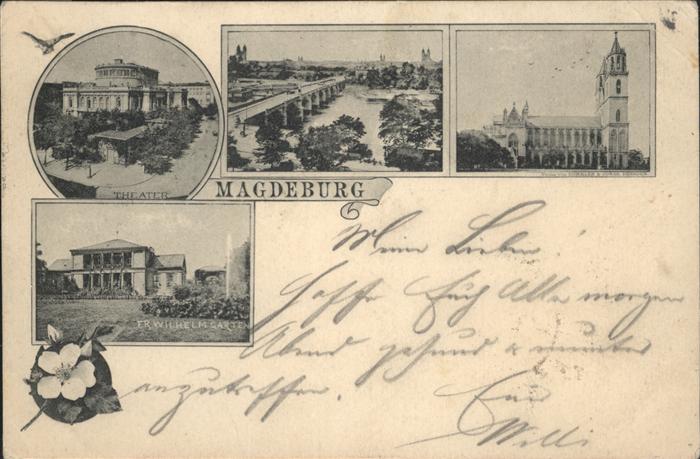 THEATER
MAGDEBURG
FR. WILHELM GARTEN
Meine Lieben!
Hoffe Euch Alle morgen
Abend gesund & munter
anzutreffen.
Euer
Willi